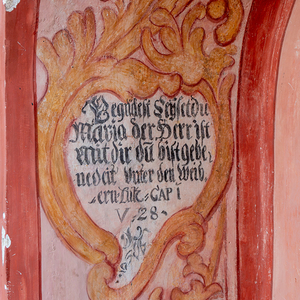 Begrüßest Seÿest du
Maria der Herr ist
mit dir du bist gebe
nedeit Unter den Weib
ern Luc CAP i
V. 28